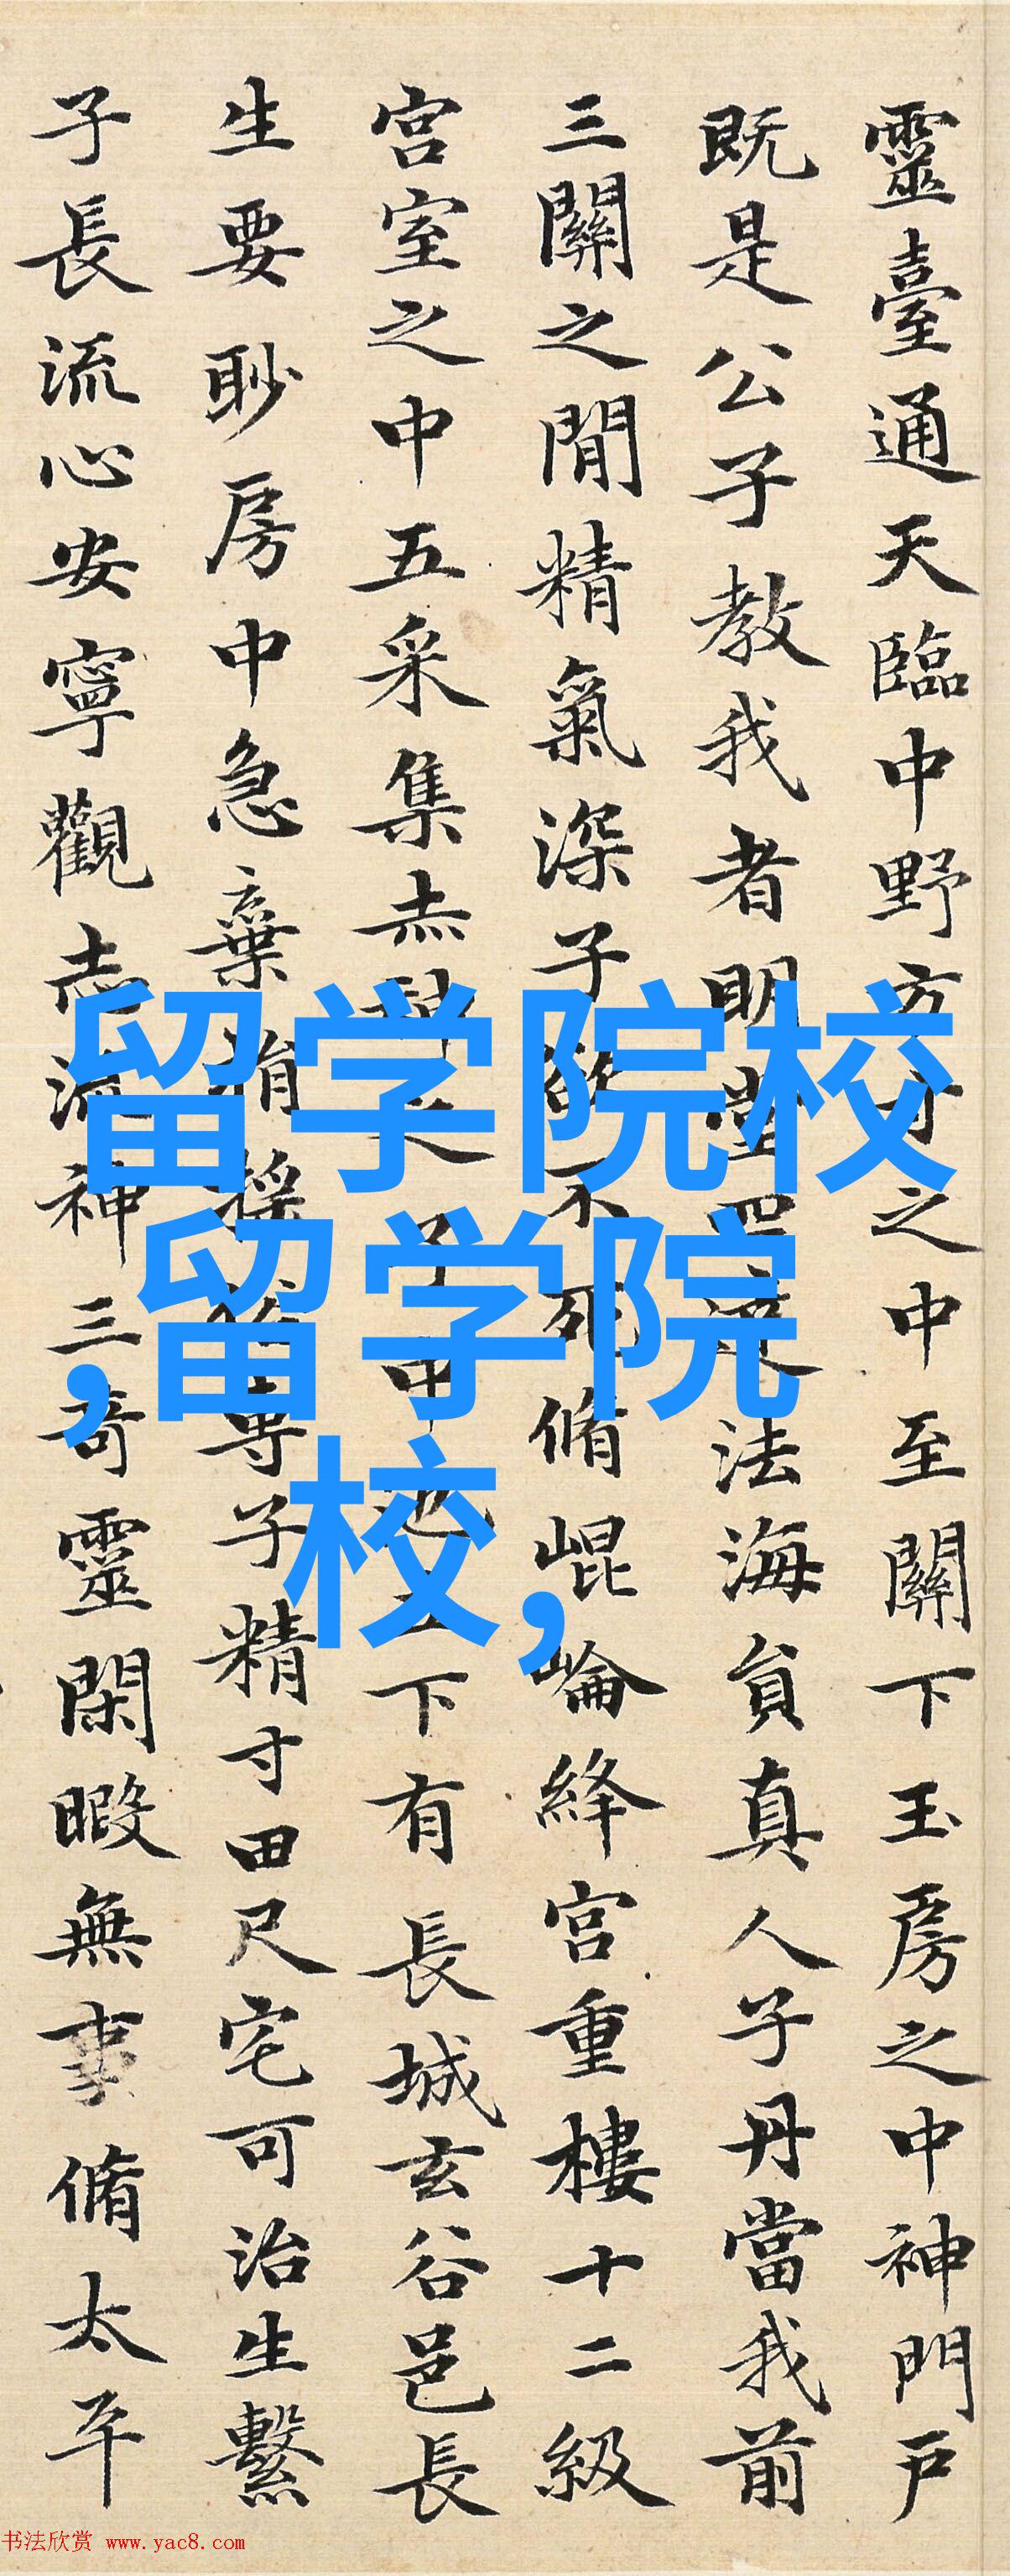 靈臺通天臨中野方寸之中至關下玉房之中神門戶
既是公子教我者明堂四達法海員真人子丹當我前
三關之閒精氣深子欲不死脩崐崘絳宮重樓十二級
宮室之中五采集赤神之子中池下有長城玄谷邑長
生要眇房中急棄捐搖專子精寸田尺宅可治生繫
子長流心安寧觀志流神三奇靈閑暇無事脩太平
留学院校
,留学院
校,
书法欣赏 www.yac8.com